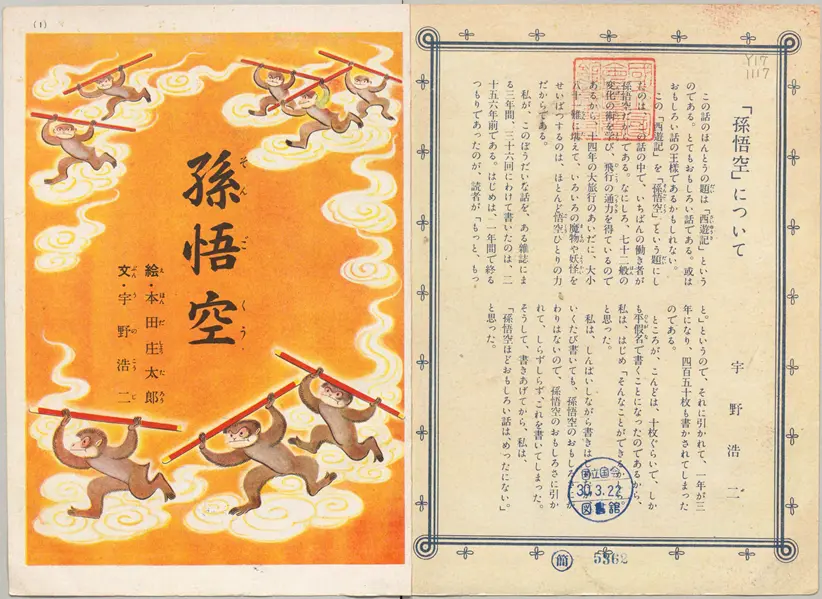 「孫悟空」について
宇野浩二
この話のほんとうの題は「西遊記」という
のである。とてもおもしろい話である。或は
おもしろい話の王様であるかもしれない。
この「西遊記」を「孫悟空」という題にし
たのは、の話の中で、いちばんの働き者が
孫悟空だからである。なにしろ、七十二般の
変化の術を学び、飛行の通力を得ているので
あるから、十四年の大旅行のあいだに、大小
八十難に堪えて、いろいろの魔物や妖怪を
せいばつするのは、ほとんど悟空ひとりの力
だからである。
私が、このぼうだいな話を、ある雑誌にま
る三年間、三十六回にわけて書いたのは、二
十五六年前である。はじめは、一年間で終る
つもりであったのが、読者が「もっと、もっ
と。」というので、それに引かれて、一年が三
年になり、四百五十枚も書かされてしまった
のである。
ところが、こんどは、十枚ぐらいで、しか
も平假名で書くことになったのであるから、
私は、はじめ「そんなことができる
と思った。
私は、しんぱいしながら書きは
いくたび書いても、孫悟空のおもしろさ
わりはないので、孫悟空のおもしろさに引か
れて、しらずしらず、これを書いてしまった。
そうして、書きあげてから、私は、
「孫悟空ほどおもしろい話は、めったにない。」
と思った。
Y17
1117
国立国会
30.3.22
図書館
簡
5362
(1)
孫悟空
そんごくう
絵・本田庄太郎
え ほんだしょうたろう
文・宇野浩二
ぶん うのこうじ